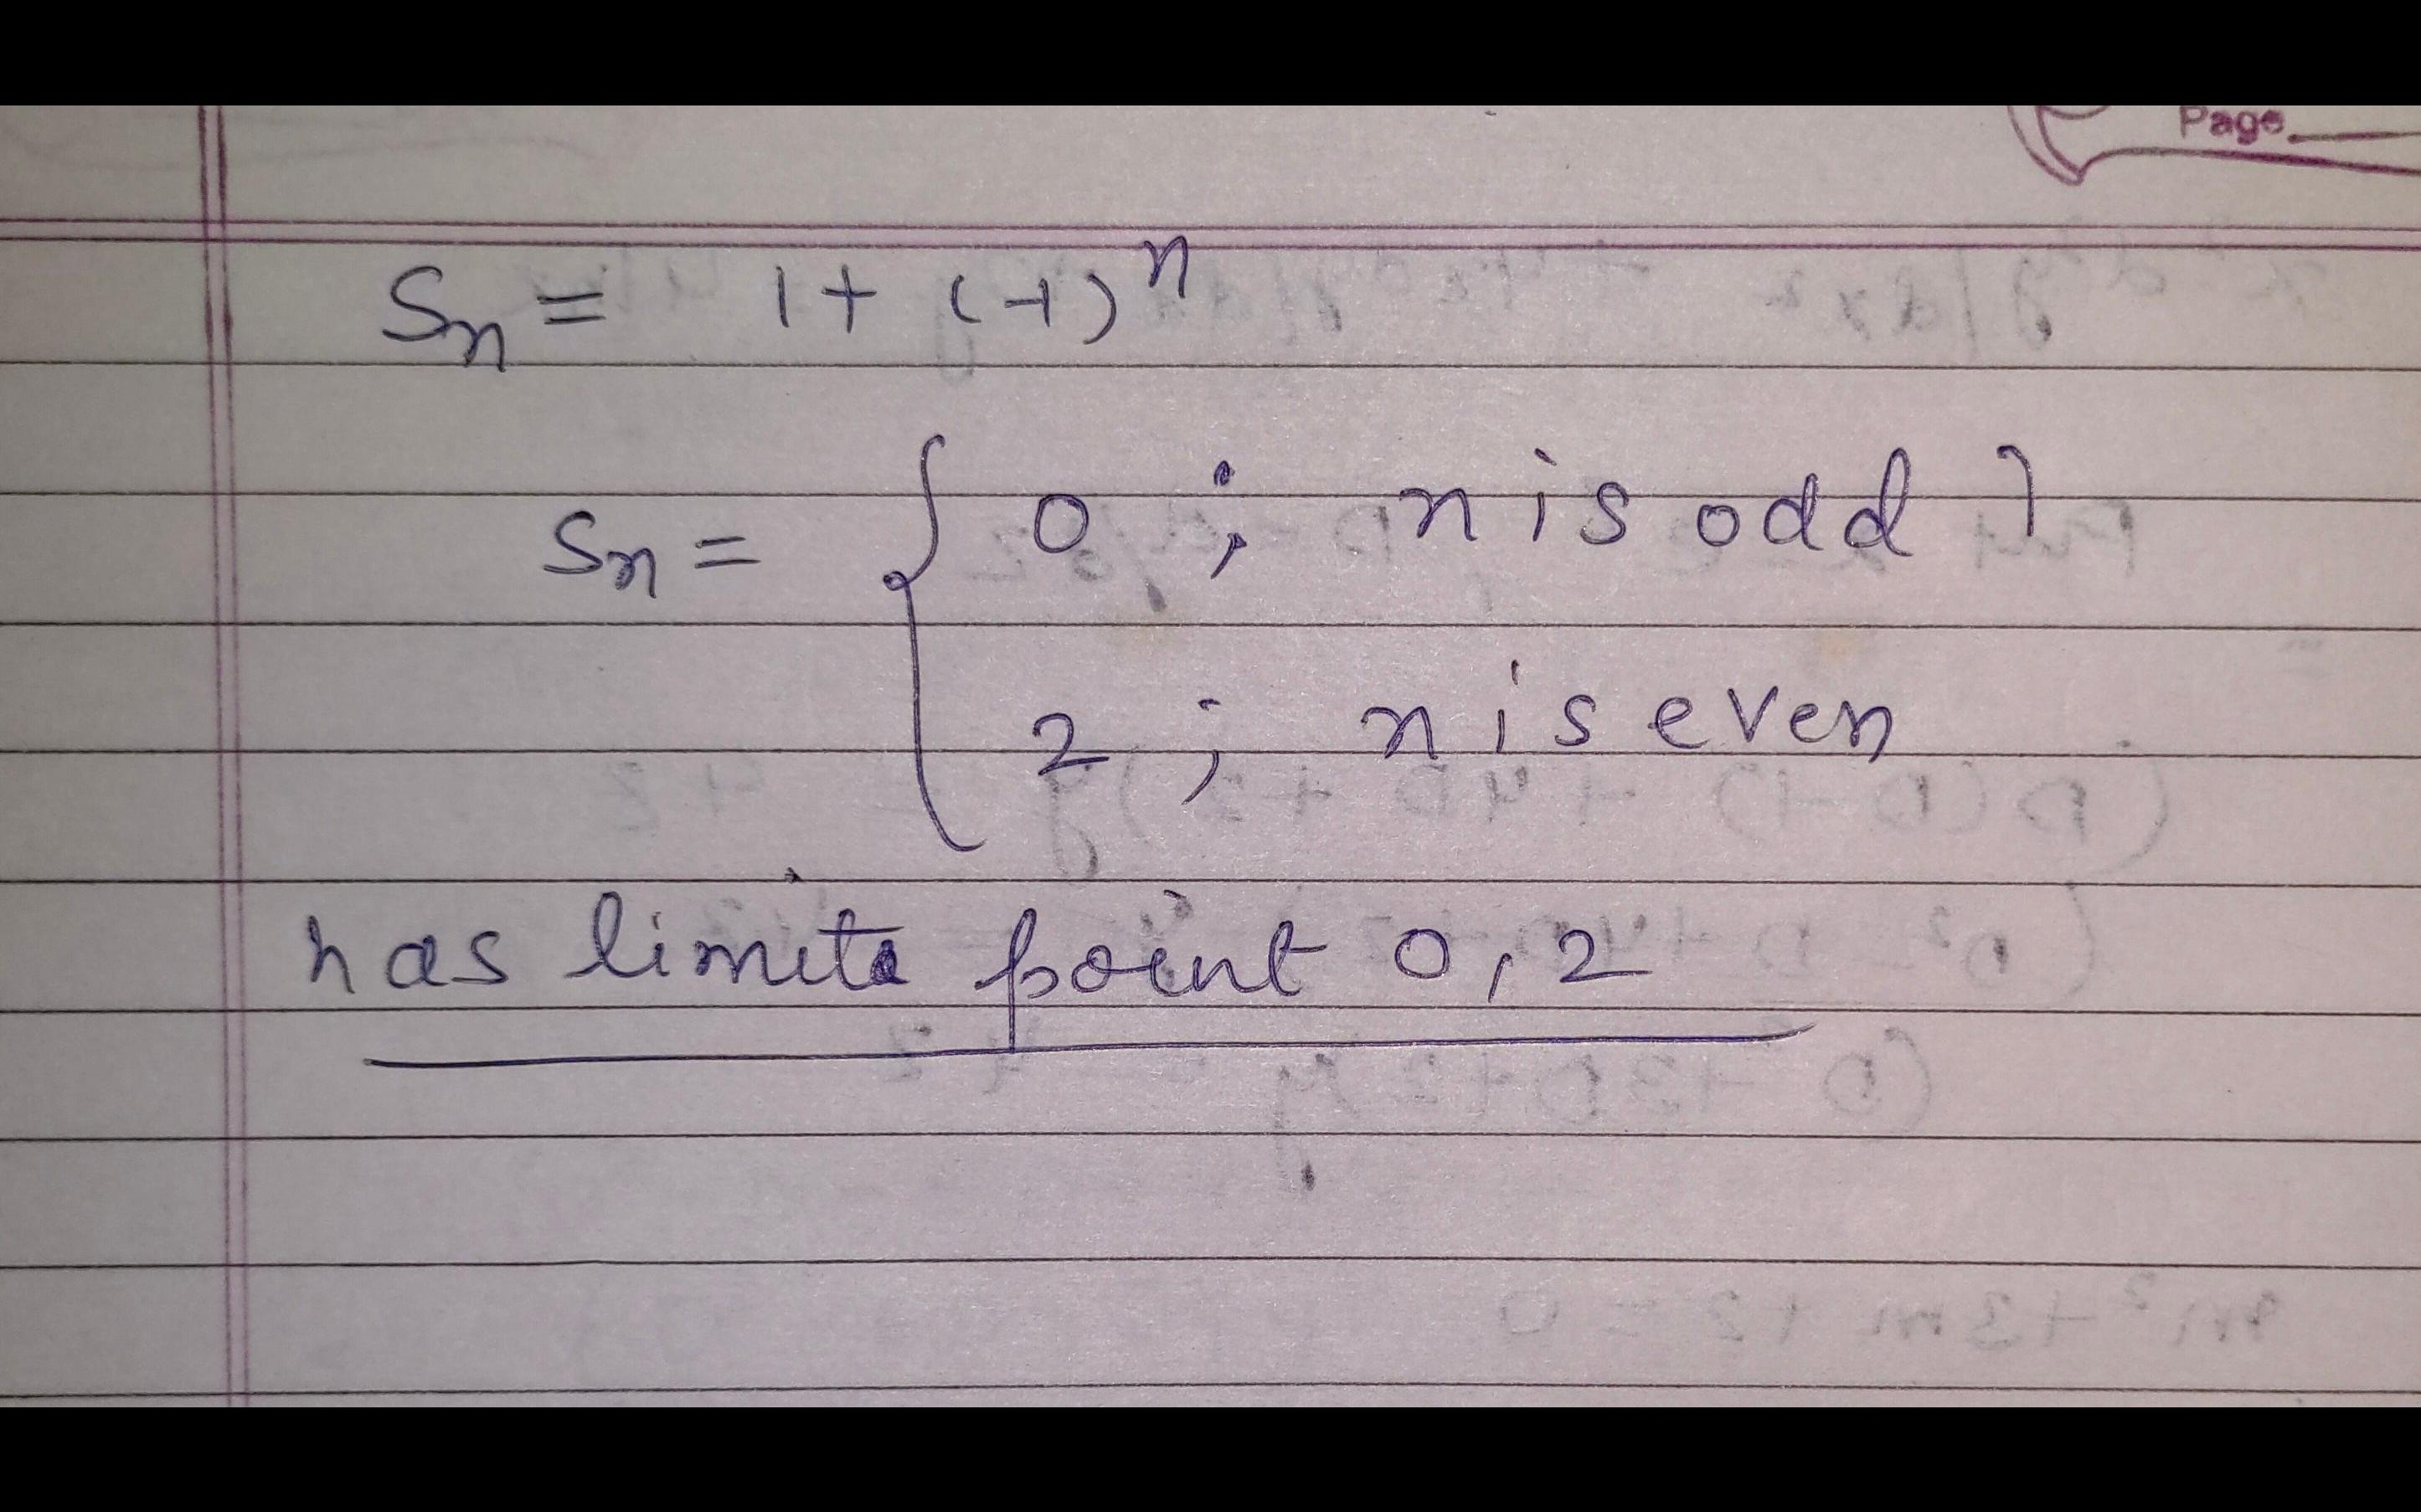 Page
Sn = 1 + (-1)^n
Sn = { 0 ; n is odd }
2 ; n is even
has limits point 0, 2